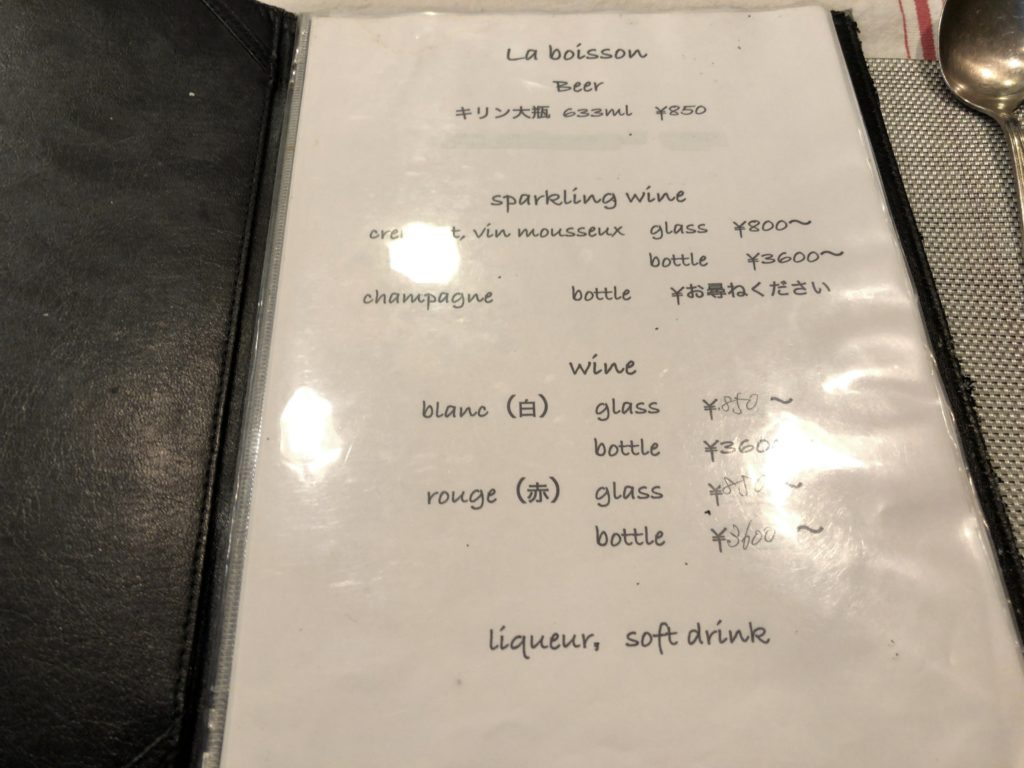 La boisson
Beer
キリン大瓶 633ml ¥850
sparkling wine
vin mousseux glass ¥800～
bottle ¥3600～
champagne bottle ¥お尋ねください
wine
blanc（白） glass ¥850～
bottle
rouge（赤） glass ¥850～
bottle ¥3600～
liqueur, soft drink